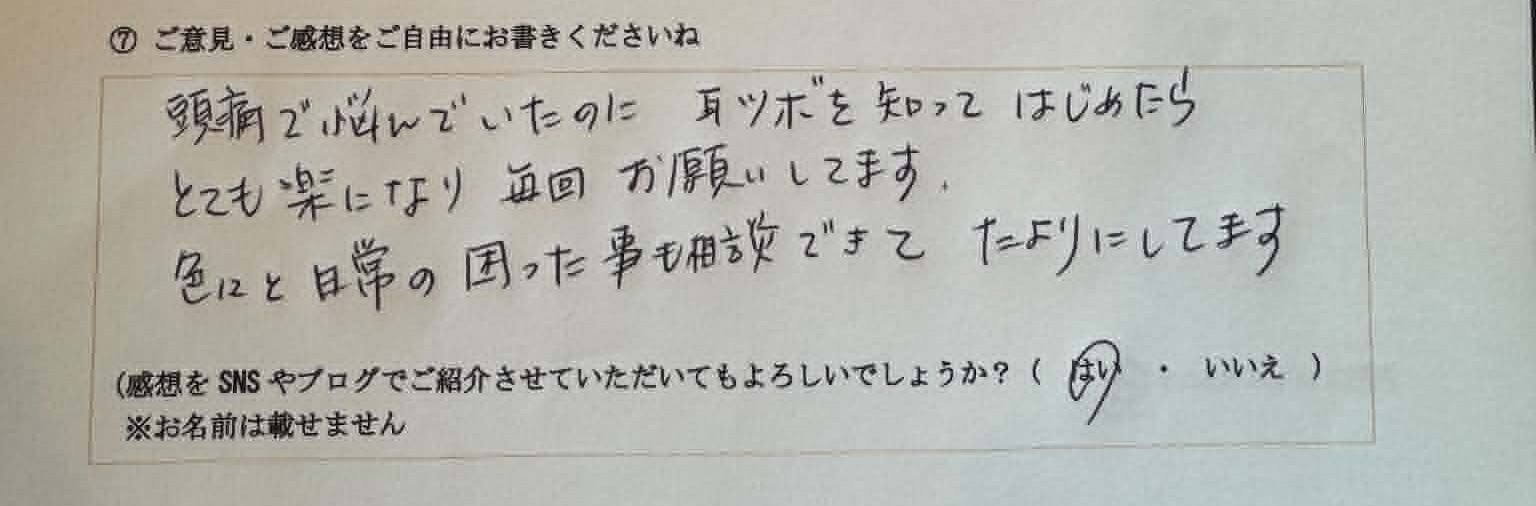 ⑦ ご意見・ご感想をご自由にお書きくださいね
頭痛で悩んでいたのに 耳ツボを知って はじめたら
とても楽になり 毎回 お願いしてます.
色にと 日常の 困った事も相談できて たよりにしてます
(感想を SNS やブログでご紹介させていただいてもよろしいでしょうか? ( はい ・ いいえ )
※お名前は載せません